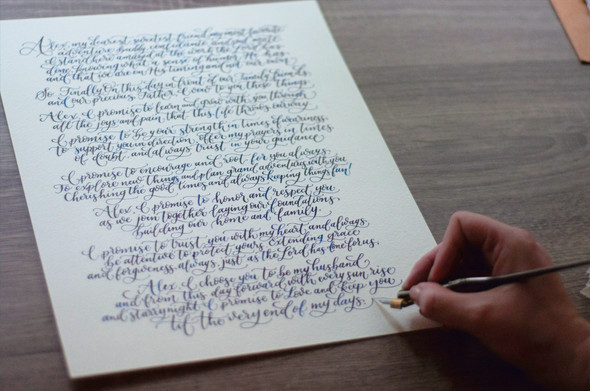 Alex, my dearest sweetest friend, my most favorite
adventure buddy, confidante and soul mate
I stand here amazed at the work the Lord has
done knowing what a sense of humor He has
and that we are in His timing and not our own
So, Finally On this day in front of our family, friends,
and our precious Father, I vow to you these things
Alex, I promise to learn and grow with you through
all the joys and pain that this life throws our way
I promise to be your strength in times of weariness,
to support you in direction, offer my prayers in times
of doubt, and always trust in your guidance
I promise to encourage and root for you always,
To explore new things and plan grand adventures with you
Cherishing the good times and always keeping things fun!
Alex, I promise to honor and respect you
as we join together laying our foundations,
building our home and family.
I promise to trust you with my heart and always
be attentive to protect yours extending grace
and forgiveness, always, just as the Lord has for us,
Alex, I choose you to be my husband
and from this day forward with every sun rise
and starry night, I promise to Love and keep you
'til the very end of my days.